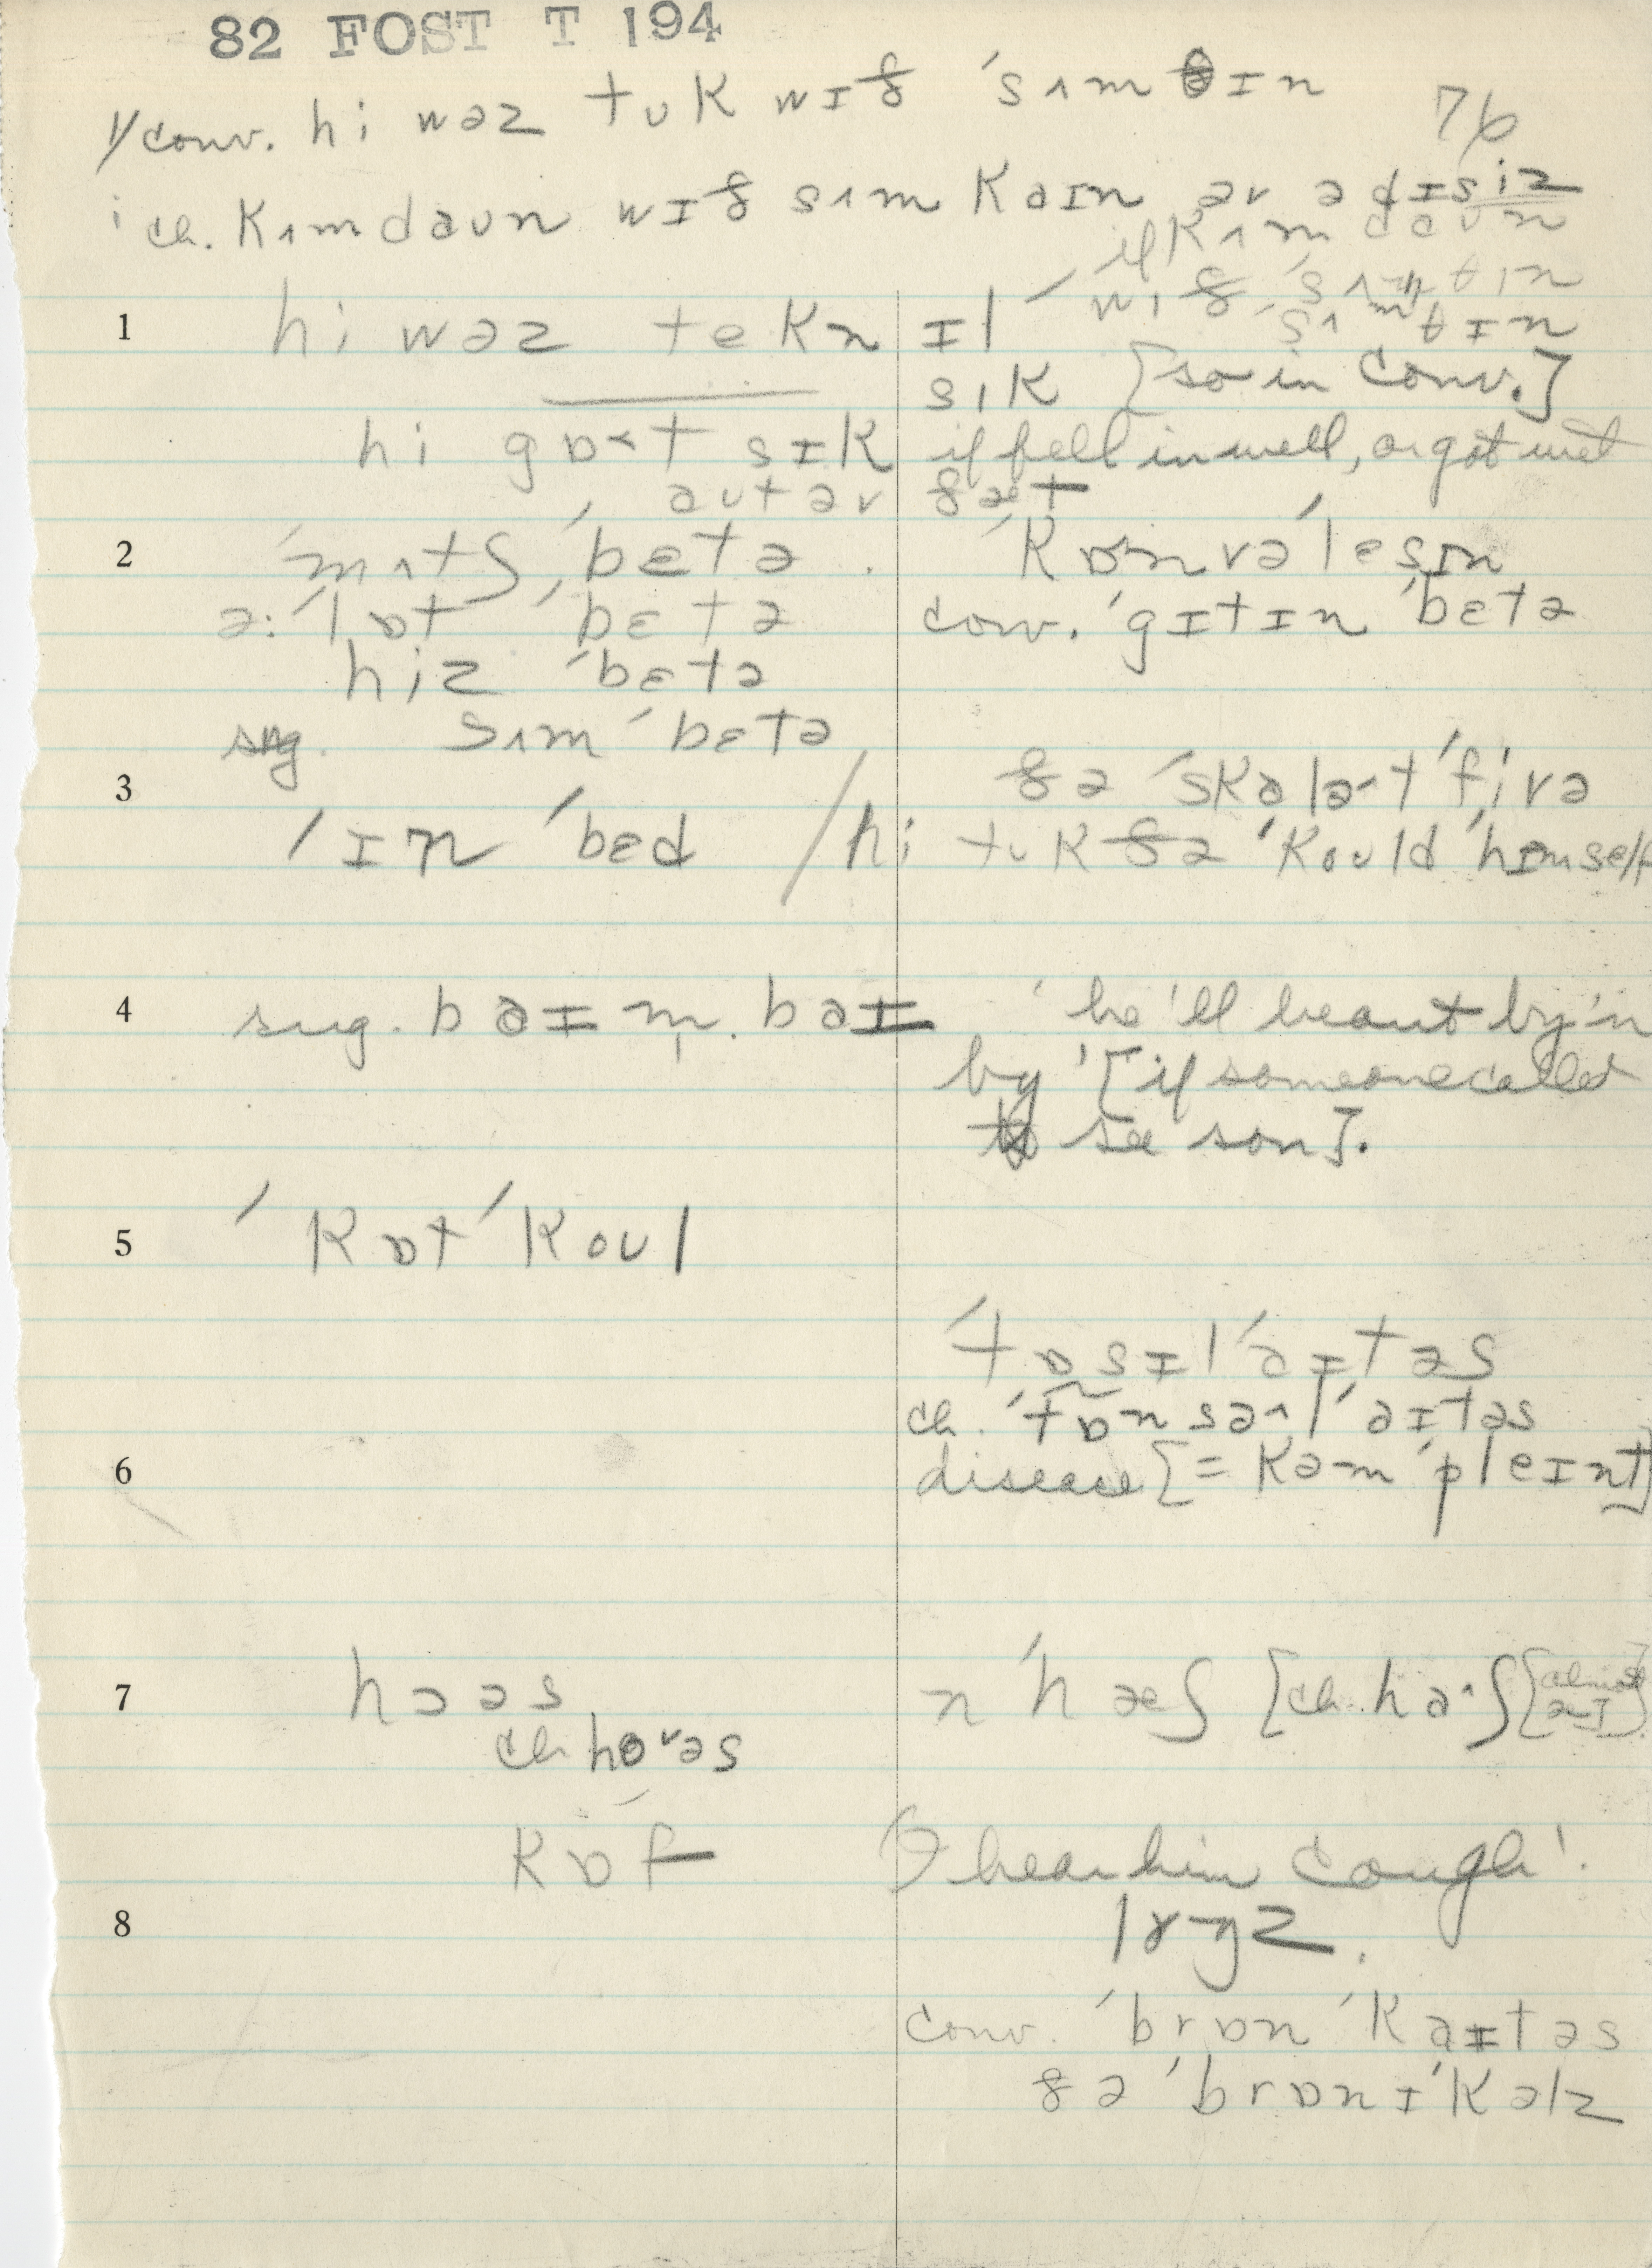 82 FOST T 194
1/ conv. hi wəz tʊk wɪð ˈsʌmθɪn 76
ch. kʌm daʊn wɪð sʌm kaɪn əv ə dɪsiz
if kʌm daʊn
wɪð ˈsʌmθɪn
ˈsʌmθɪn
1 hi wəz tekn ɪl
sɪk [so in conv.]
hi gɒ˂t sɪk if fell in well, or got wet
aʊt əv ðæt
2 ˈmʌtʃ ˈbɛtə . ˈkɒnvəˈlesɪn
ə: ˈlɒt ˈbɛtə conv. ˈgɪtɪn ˈbɛtə
hiz ˈbɛtə
sug. sʌm ˈbɛtə
3 ðə ˈskɑlə˞t ˈfivə
ˈɪn ˈbɛd / hi tʊk ðə ˈkoʊld ˈhɪmself
4 sug. baɪ m̩ baɪ 'he'll be out by 'n
by' [if someone called
to see son].
5 ˈkɒt ˈkoʊl
ˈtɒsɪlˈaɪtəs
ch. ˈtɒnsəlˈaɪtəs
6 disease [= kəmˈpleɪnt]
7 hɔəs n ˈhæʃ [ch. haʃ [almost
ch. hoəs
kɒf I hear him cough'.
8 lʌŋz.
conv. ˈbrɒnˈkaɪtəs
ðə ˈbrɒnɪˈkəlz